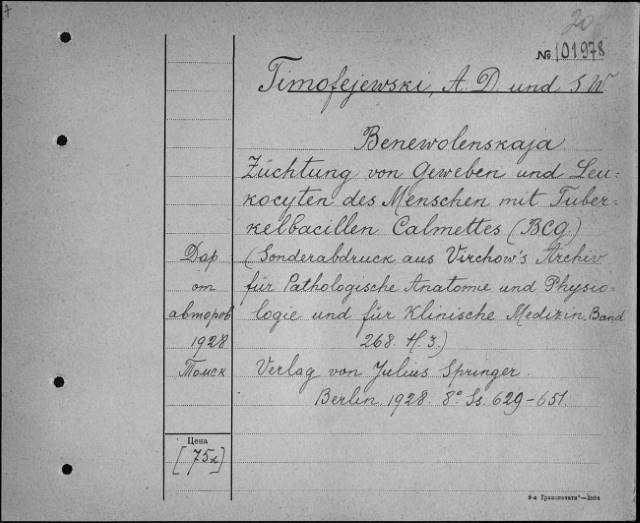 20
№ 101978
Timofejewski, A. D. und S W
Benewolenskaja.
Züchtung von Geweben und Leu-
kocyten des Menschen mit Tuber-
kelbacillen Calmettes (BCG.)
Дар
от
авторов
1928
Томск
(Sonderabdruck aus Virchow's Archiv
für Pathologische Anatomie und Physio-
logie und für Klinische Medizin. Band
268. H. 3.)
Verlag von Julius Springer.
Berlin. 1928. 8° Ss. 629-651.
Цена
[75к]